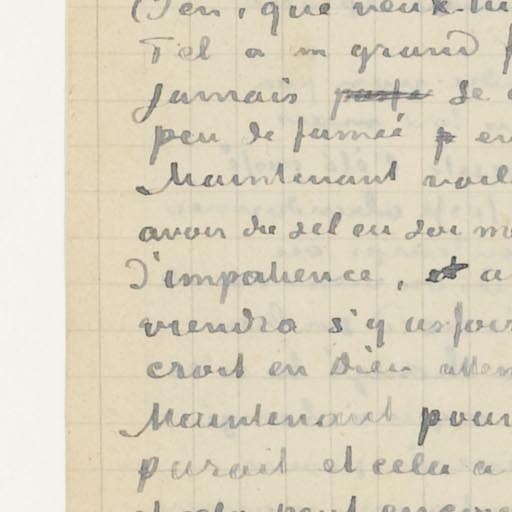 , que veux-tu
Tel a un grand
jamais se
peu de fumée en
Maintenant
avoir du sel en soi
d'impatience, a
viendra s'y asseoir
croit en Dieu
Maintenant pour
parait et cela a
et cela peut encore